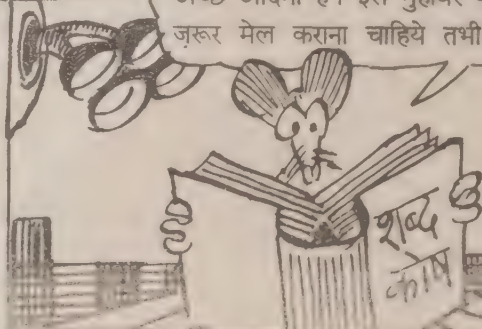 ज़रूर मेल कराना चाहिये तभी
शब्द
कोष